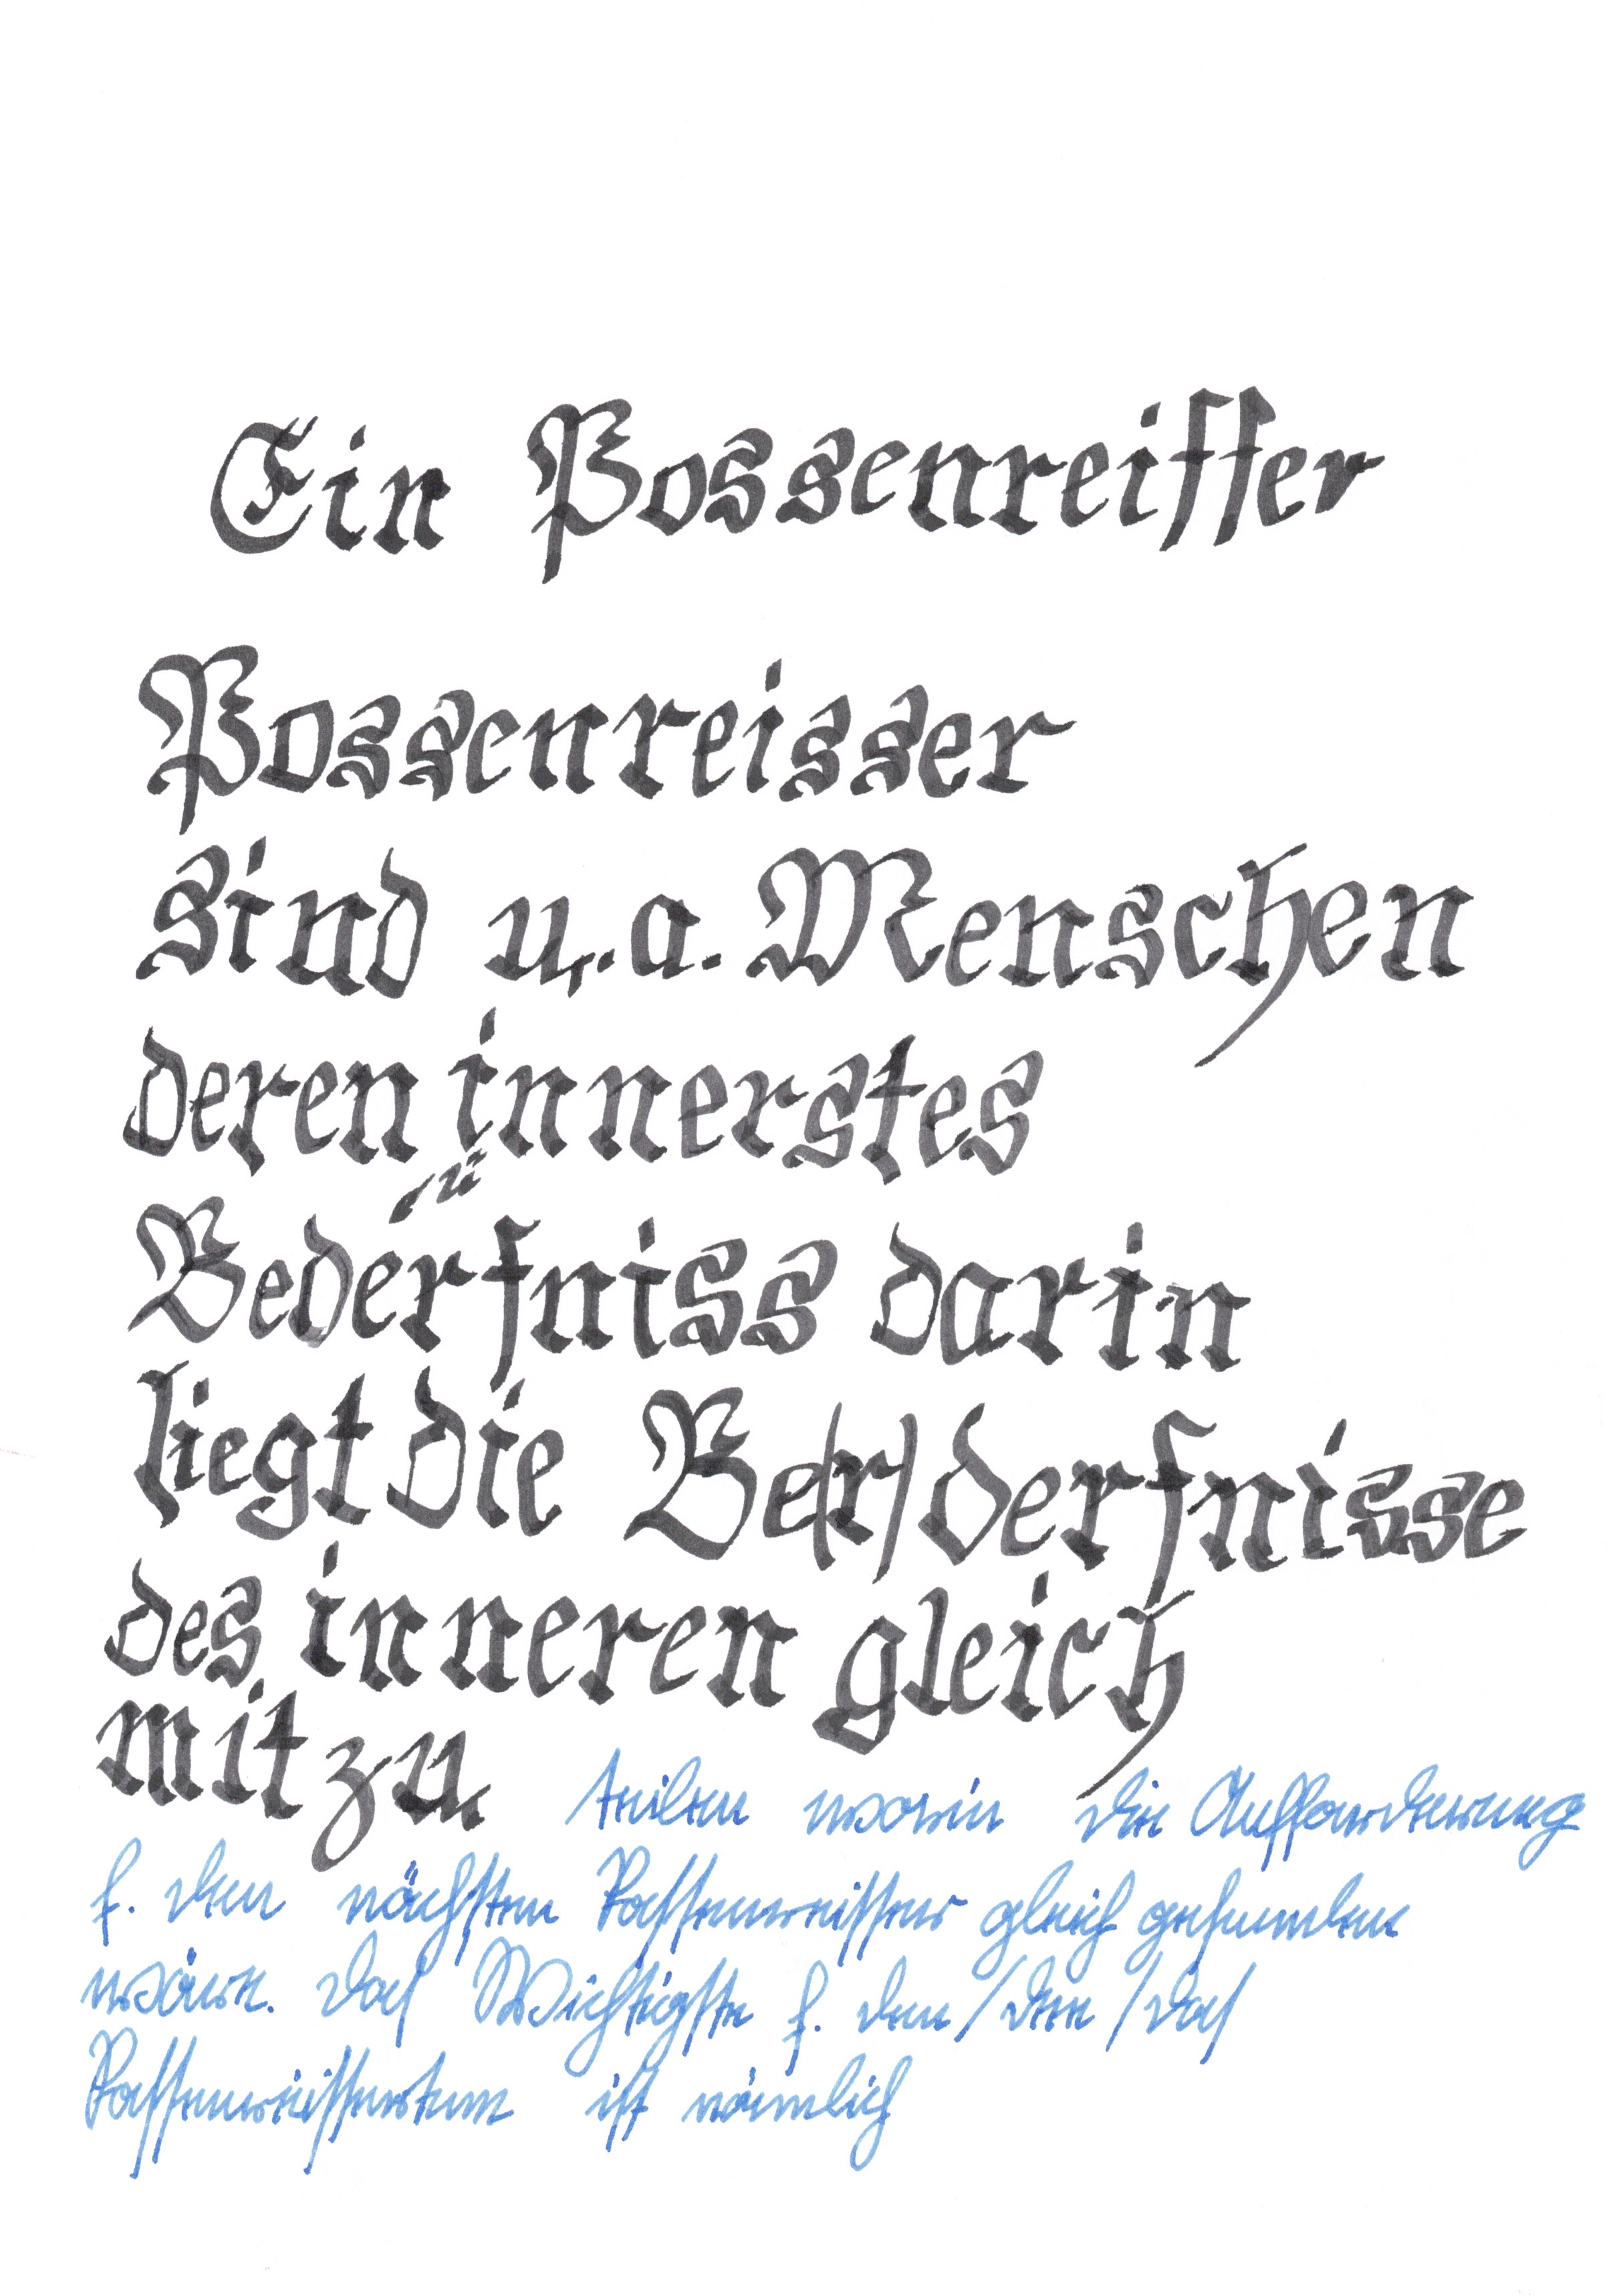 Ein Possenreiſſer
Possenreisser
sind u. a. Menschen
deren innerstes
ü
Bederfniss darin
liegt die Be(r)derfnisse
des inneren gleich
mit zu teilen worin die Aufforderung
f. den nächſten Poſſenreiſſer gleich gefunden
wäre. Das Wichtigſte f. den/den/das
Poſſenreiſſertum iſt nämlich